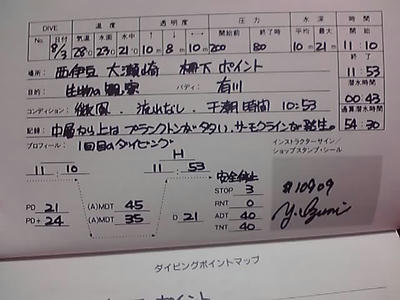 DIVE 温度 透明度 圧力 水深 時間
No. 日付 気温 水面 水中 ↑ ↓ → 開始前 終了後 平均 最大 開始
8/3 28℃ 23℃ 21℃ 10m 8m 10m 200 80 10m 21m 11:10
場所: 西伊豆 大瀬崎 柵下 ポイント 終了 11:53
目的: 生物の観察 バディ: 有川 潜水時間
コンディション: 微風、流れなし、干潮時間 10:53 00:43
記録: 中層から上はプランクトンが多い、サーモクラインが発生。 通算潜水時間 54:30
プロフィール: 1回目のダイビング インストラクターサイン/
ショップスタンプ・シール
H
11:10 11:53 安全停止
STOP 3 #10909
PD 21 (A)MDT 45 RNT 0
PD+ 24 (A)MDT 35 D 21 ADT 40
TNT 40
ダイビングポイントマップ
ポイント